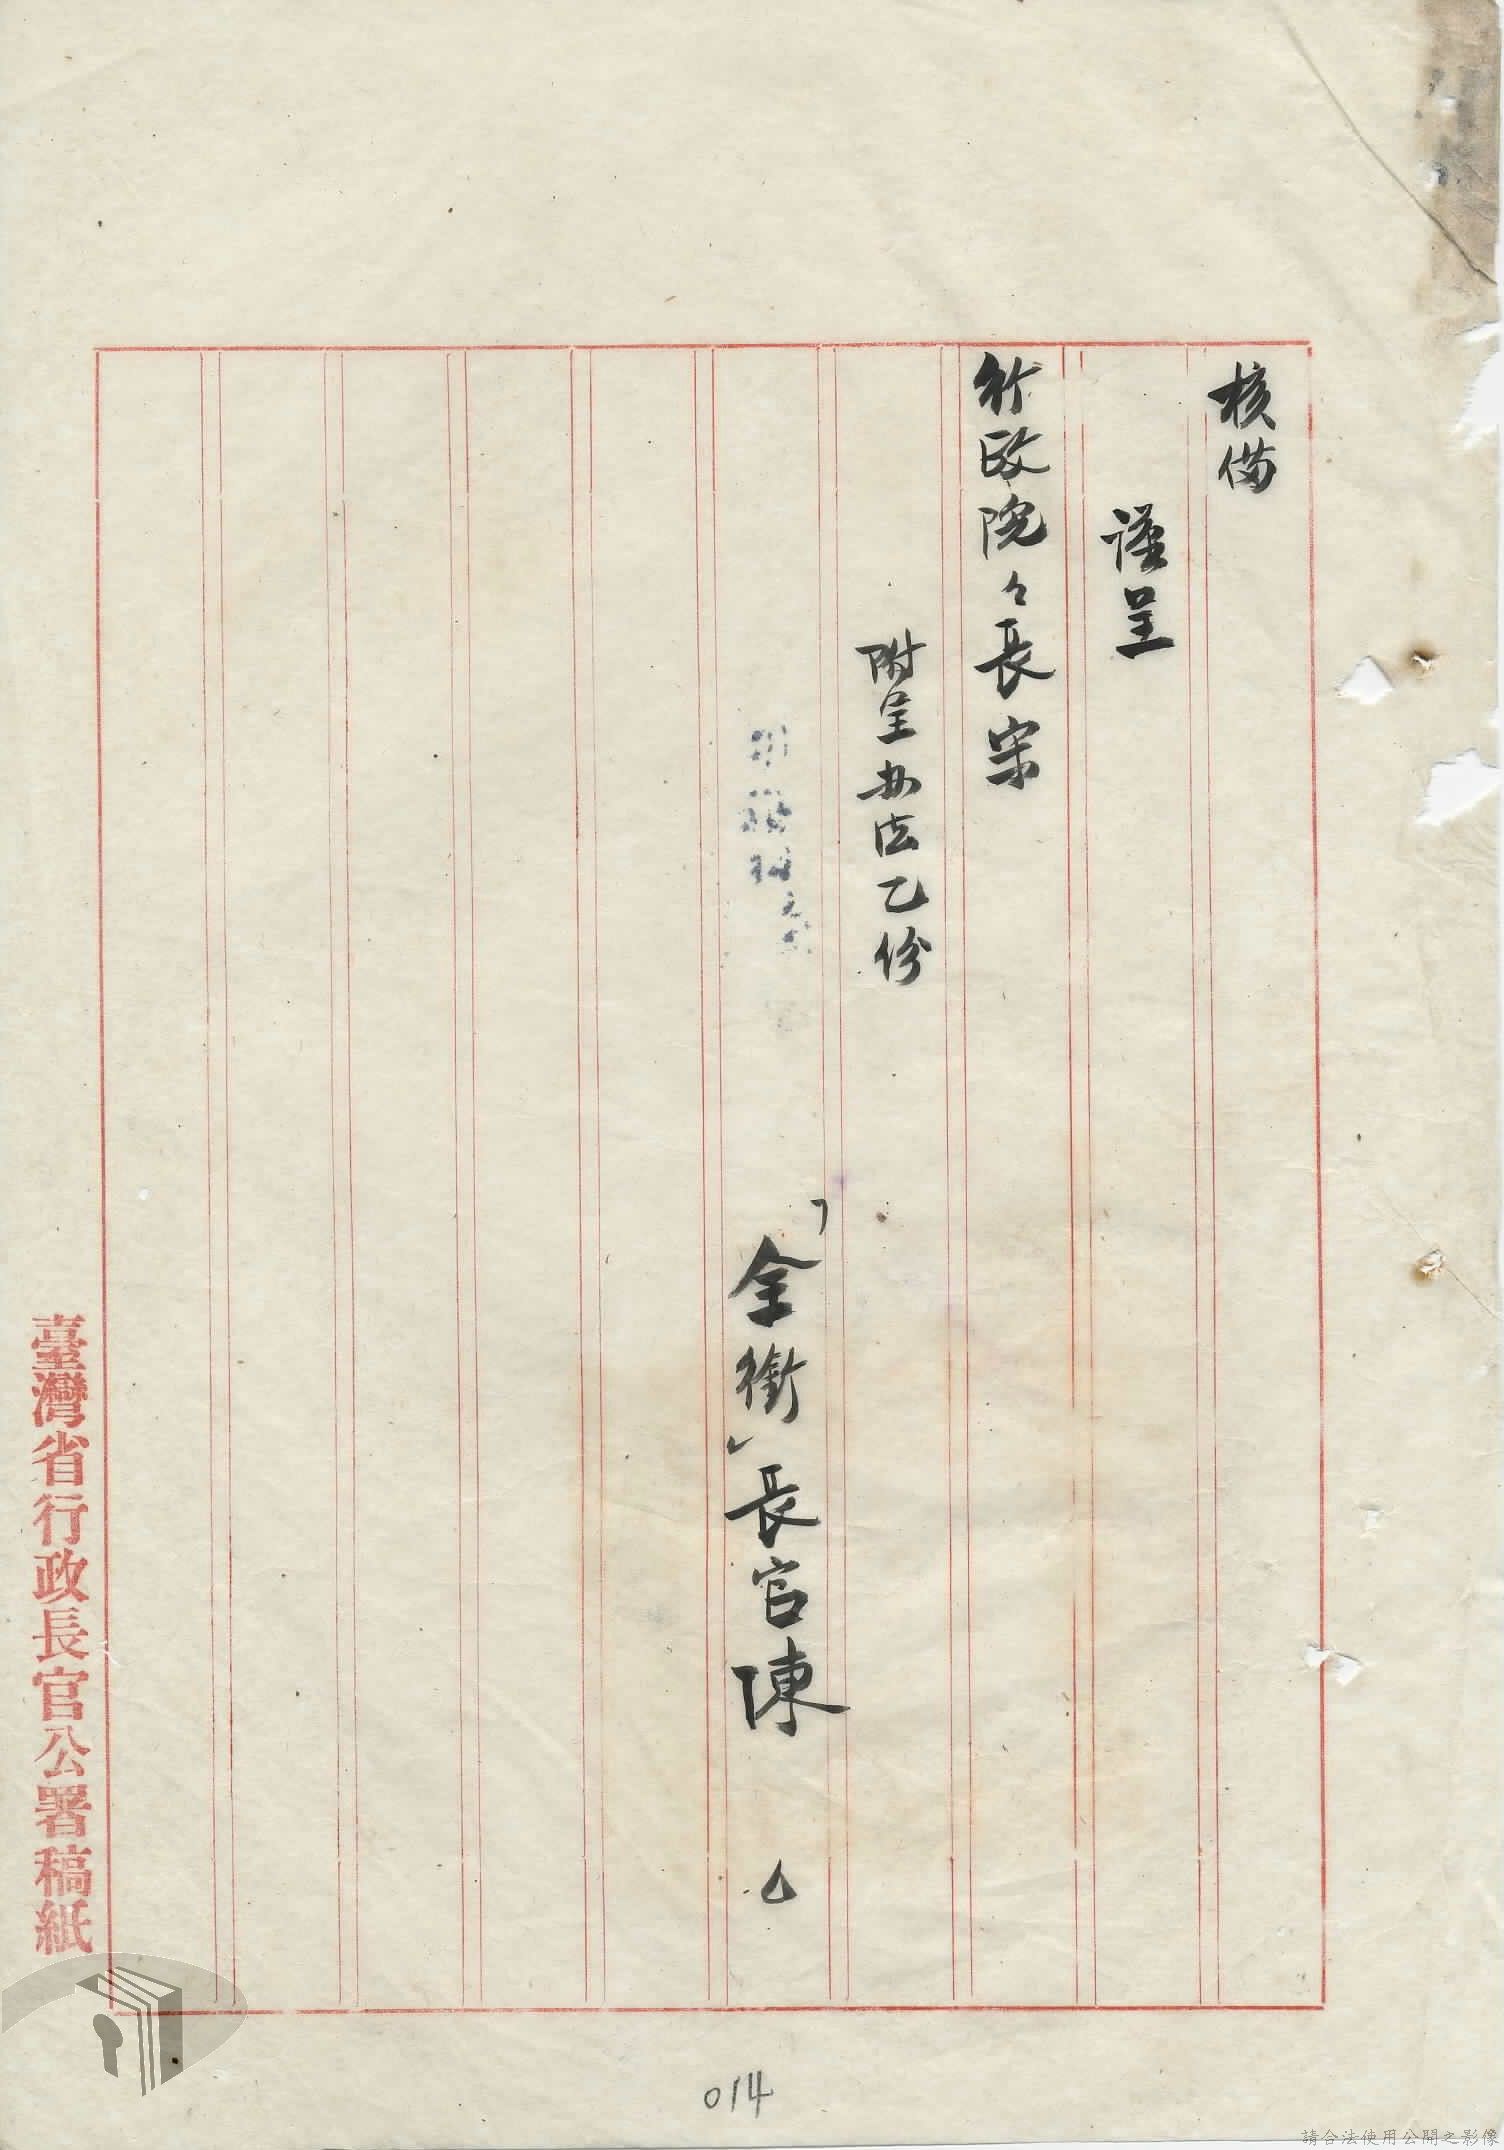 核备
謹呈
行政院々長宋
附呈办法乙份
「全銜」長官陳
臺灣省行政長官公署稿紙
014
請合法使用公開之影像